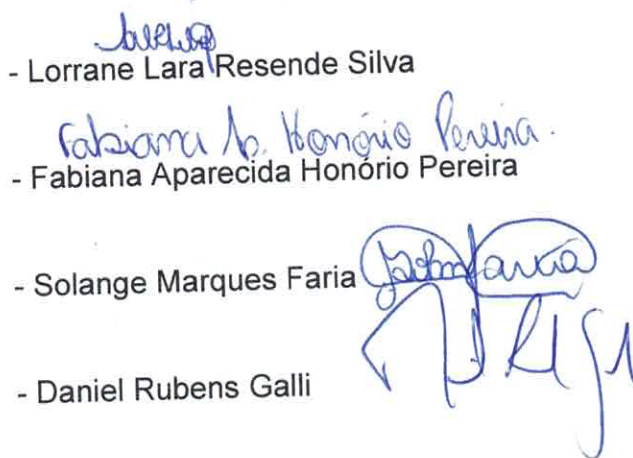 - Lorrane Lara Resende Silva
Fabiana Ap. Honório Pereira.
- Fabiana Aparecida Honório Pereira
- Solange Marques Faria
- Daniel Rubens Galli